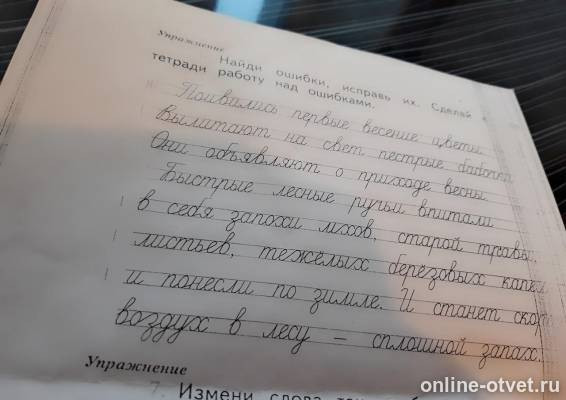 Упражнение
Найди ошибки, исправь их. Сделай
тетради работу над ошибками.
Поивались первые весение цветы.
Вылитают на свет пестрые бабочки
Они объявляют о приходе весны.
Быстрые лесные ручьи впитали
в себя запохи мхов, старой травы,
листьев, тежёлых берёзовых капе
и понесли по зимле. И станет ско
воздух в лесу – сплошной запах.
Упражнение
7. Измени слова
online-otvet.ru